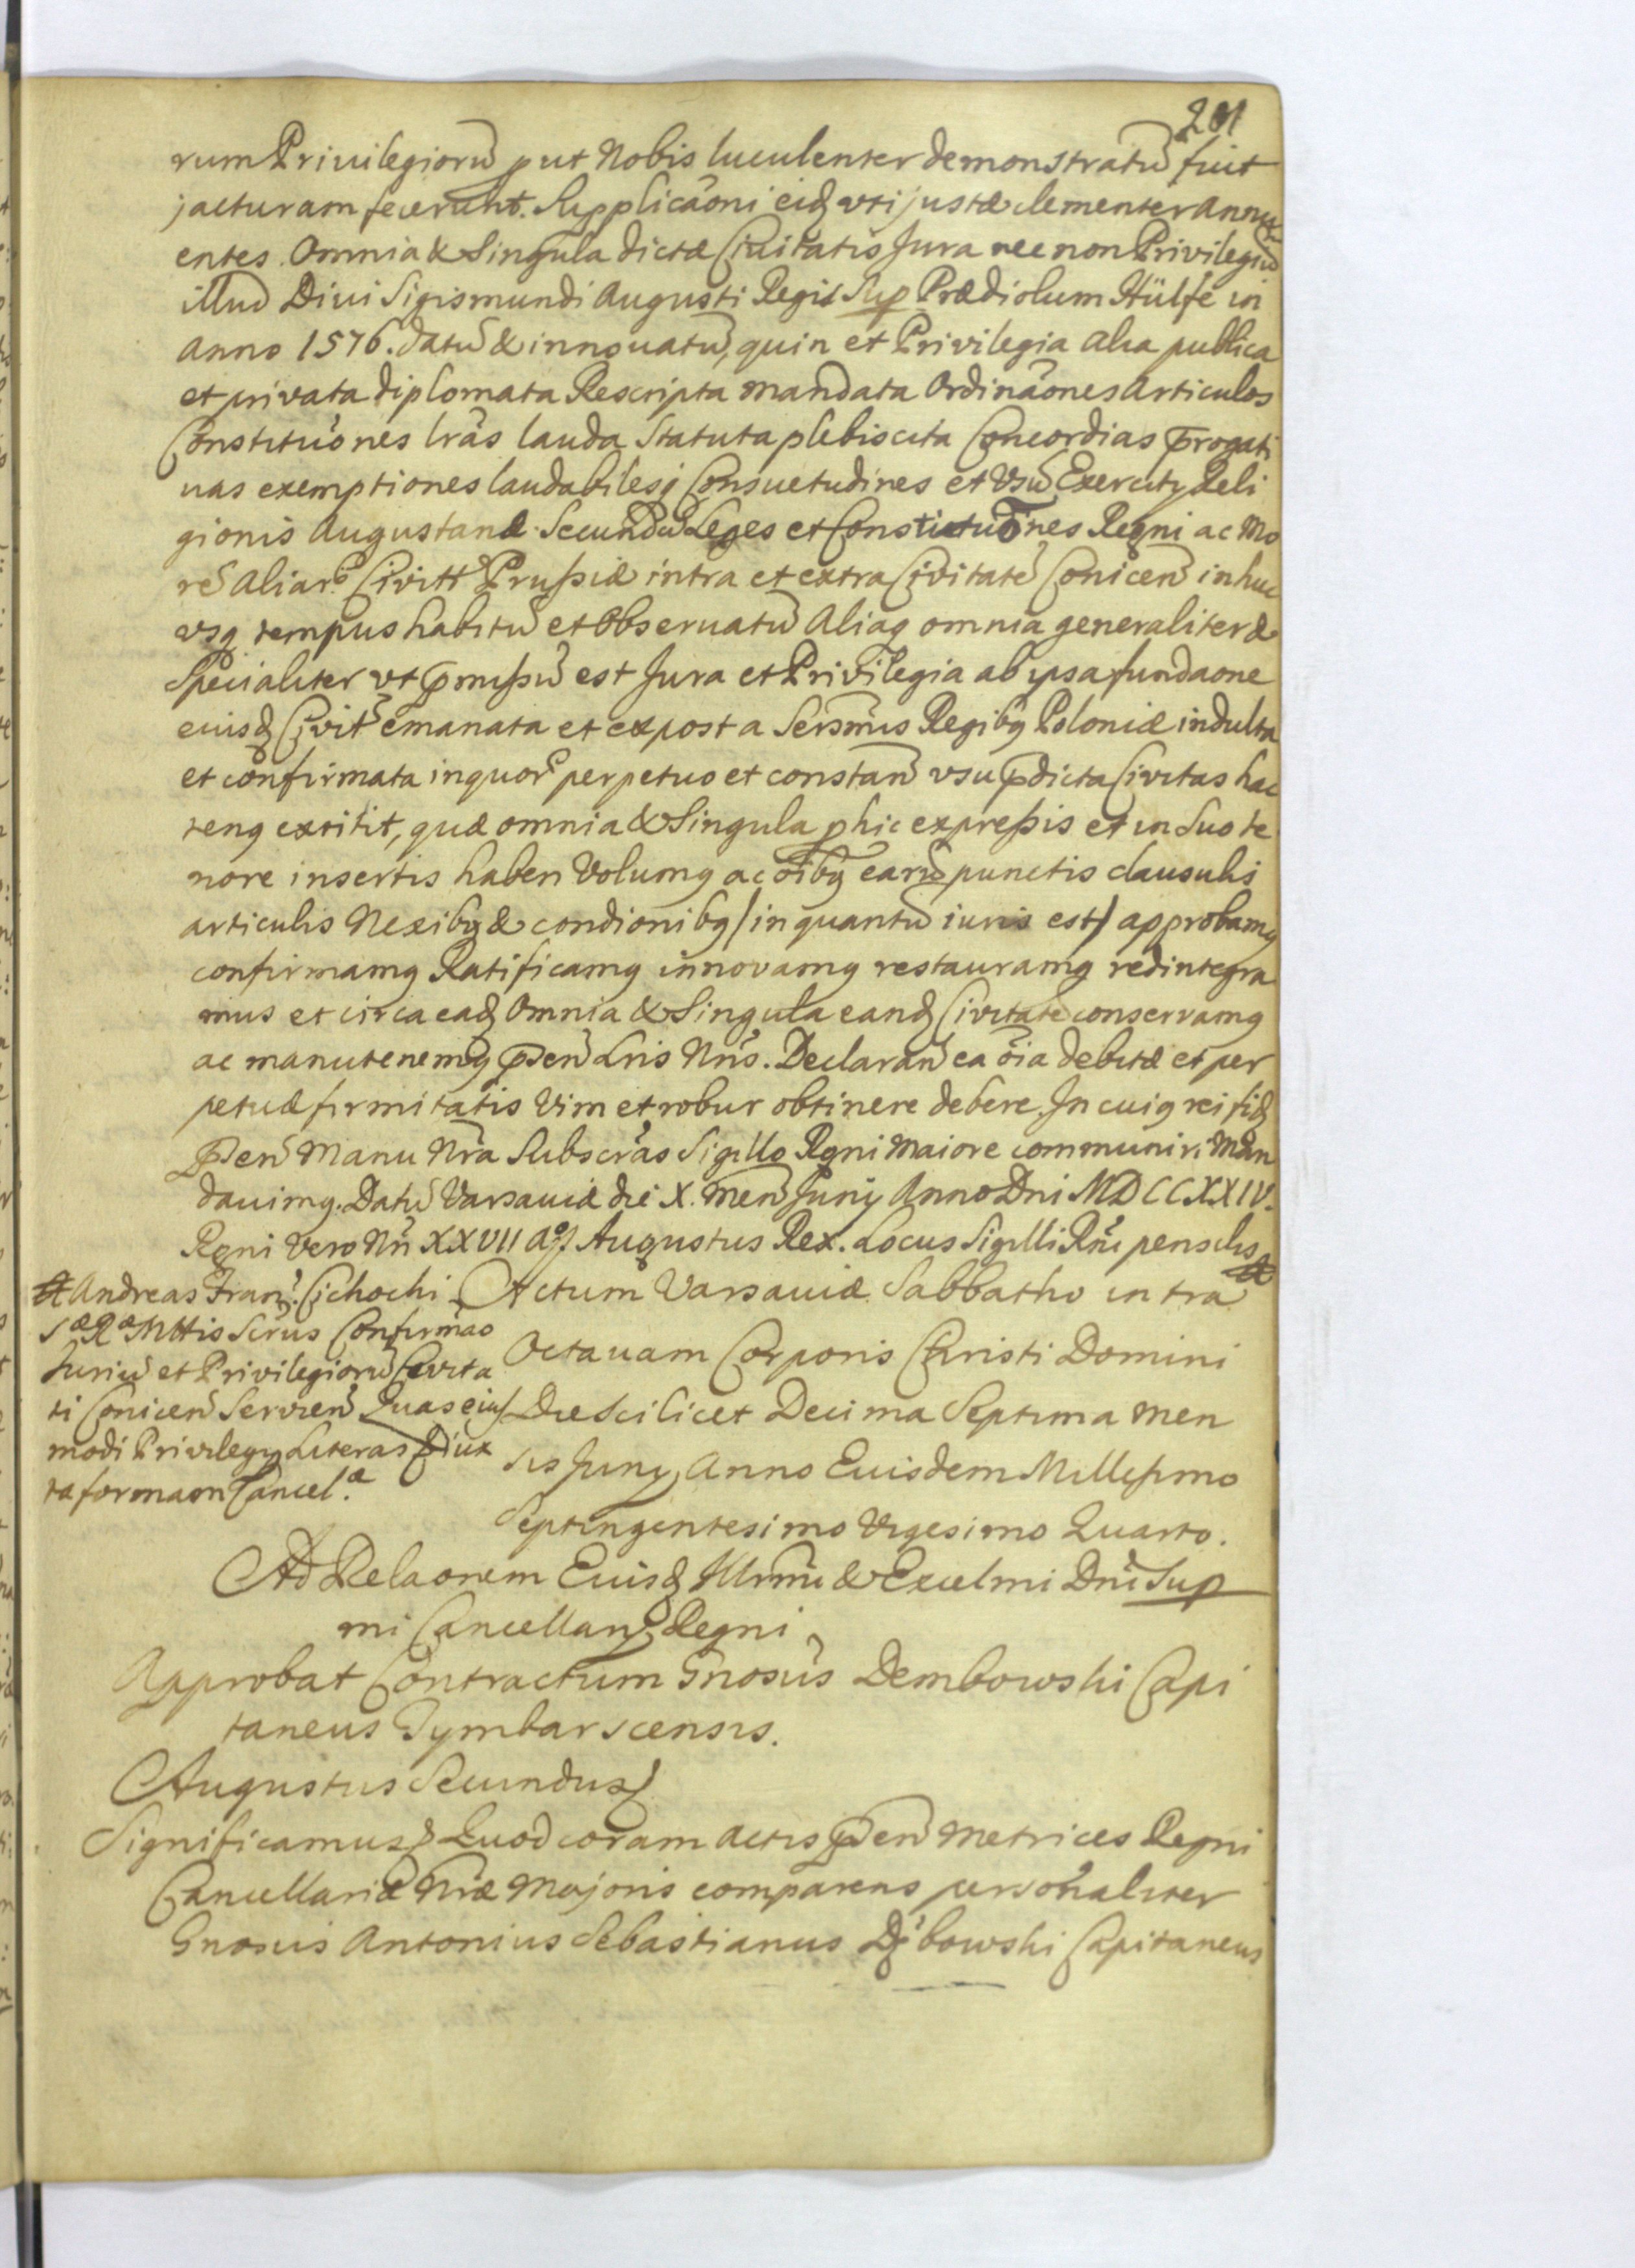 201
rum Privilegiorũ put Nobis luculenter demonstratũ fuit
jacturam fecerunt. Supplicãoni eidꝫ vti justæ clementer annu
entes Omnia & Singula dictæ Civitatis Jura nec non Privilegiũ
illud Divi Sigismundi Augusti Regis Sup Prædiolum Hülfe in
Anno 1576. datũ & innouatũ, quin et Privilegia alia publica
et privata diplomata Rescripta mandata Ordinãones Articulos
Constituõnes lrãs lauda Statuta plebiscita Concordias p̃rogati
uas exemptiones laudabilesq Consuetudines et Usũ Exercitÿ Reli
gionis Augustanæ Secundũ Leges et Constitutiõnes Regni ac Mo
rẽ aliar Civitt Prussiæ intra et extra Civitatẽ Conicen̄ in huc
vsq tempus habitũ et Obseruatũ Aliaq omnia generaliter &
Specialiter vt p̃missũ est Jura et Privilegia ab ipsa fundaone
euisdꝫ Civit emanata et expost a Serẽsmis Regibꝰ Poloniæ indulta
et confirmata in quor perpetuo et constan̄ vsu p̃dicta Civitas hac
tenꝰ extitit, quæ omnia & Singula p hic expressis et in Suo te
nore insertis haben Volumꝰ ac oĩbꝰ earũ punctis clausulis
articulis Nexibꝰ & condionibꝰ /in quantũ iuris est/ approbamꝰ
confirmamꝰ Ratificamꝰ innovamꝰ restauramꝰ redintegra
mus et circa eadꝫ Omnia & Singula eandꝫ Civitatẽ conservamꝰ
ac manutenemꝰ p̃sen̄ Lris Nrĩs. Declaran̄ ea oĩa debitæ et per
petuæ firmitatis Vim et robur obtinere debere. In cuiꝰ rei fidꝫ
p̃sen̄ Manu Nrã Subscrãs Sigillo Regni Maiore communiri Man
dauimꝰ. Datũ Varsauiæ die X. Men̄ Junÿ Anno Dni MDCCXXIV.
Regni Vero Nri XXVII Aõ Augustus Rex. Locus Sigilli Rñi pensilis
Andreas Fran: Cichocki
Sæ Ræ Mttis Scrius Confirmao
Juriũ et Privilegiorũ Civita
ti Conicen̄ Servien̄ Quas eius
modi Privilegÿ Literas & iux
ta formaon Cancel.æ
Actum Varsauiæ Sabbatho intra
Octauam Corporis Christi Domini
Die Scilicet Decima Septima Men
sis Junÿ Anno Euisdem Millesimo
Septingentesimo Vigesimo Quarto.
Ad Relaonem Euisdꝫ Illrmi & Excelmi Dni Sup
mi Cancellarÿ Regni
Approbat Contractum Gnosus Dembowski Capi
taneus Tymbarscensis.
Augustus Secundus
Significamus Quod coram Actis p̃sen̄ Metrices Regni
Cancellariæ Nræ Majoris comparens personaliter
Gnosus Antonius Sebastianus Dẽbowski Capitaneus